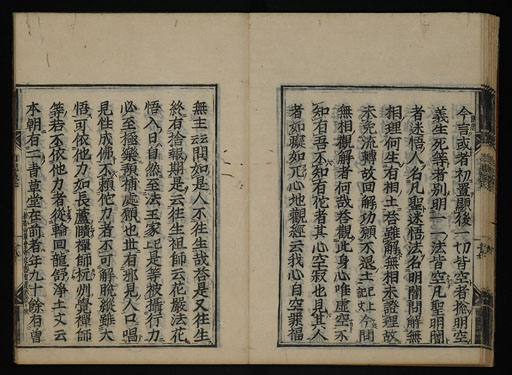 今言或者初置顯後一切皆空者揔明空
義生死等者別明一一法皆空凡聖明闇
者迷悟人名凡聖迷悟法名明闇問解無
相理何生有相土荅雖解無相未證理故
未免流轉故回解功願不退土記上今問
無相觀解者何哉荅觀此身心唯虚空不
知有吾不知有佗者其心空寂也見其人
者如礫如瓦心地觀經云我心自空罪福
無主云云問如是人不往生哉荅是又往生
終有荅報期是云往生祖師云花嚴法花
悟入日自然至法王家已是等被攝行力
必至極樂預補處願也世有那見人口唱
見性成佛不賴他力者不可解脱縱雖大
悟可依他力如長蘆賾禪師杭州貴禪師
等若不依他力者從輪回龍舒淨土文云
本朝有二青草堂在前者年九十餘有曽